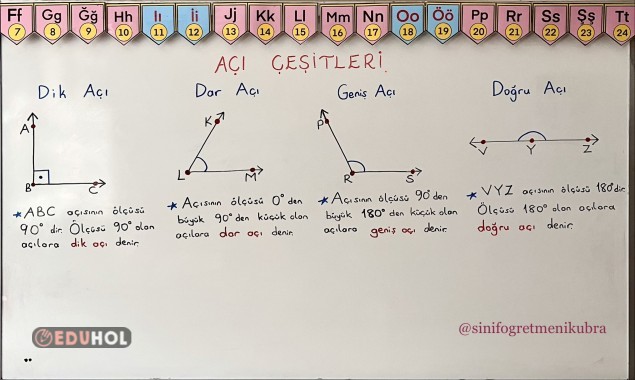 Ff Gg Ğğ Hh Iı İi Jj Kk Ll Mm Nn Oo Öö Pp Rr Ss Şş Tt
7 8 9 10 11 12 13 14 15 16 17 18 19 20 21 22 23 24
AÇI ÇEŞİTLERİ
Dik Açı
A
B
C
★ ABC açısının ölçüsü
90° dir. Ölçüsü 90° olan
açılara dik açı denir.
Dar Açı
K
L
M
★ Açısının ölçüsü 0° den
büyük 90° den küçük olan
açılara dar açı denir.
Geniş Açı
P
R
S
★ Açısının ölçüsü 90° den
büyük 180° den küçük olan
açılara geniş açı denir.
Doğru Açı
V Y Z
★ VYZ açısının ölçüsü 180° dir.
Ölçüsü 180° olan açılara
doğru açı denir.
EDUHOL
@sinifogretmenikubra